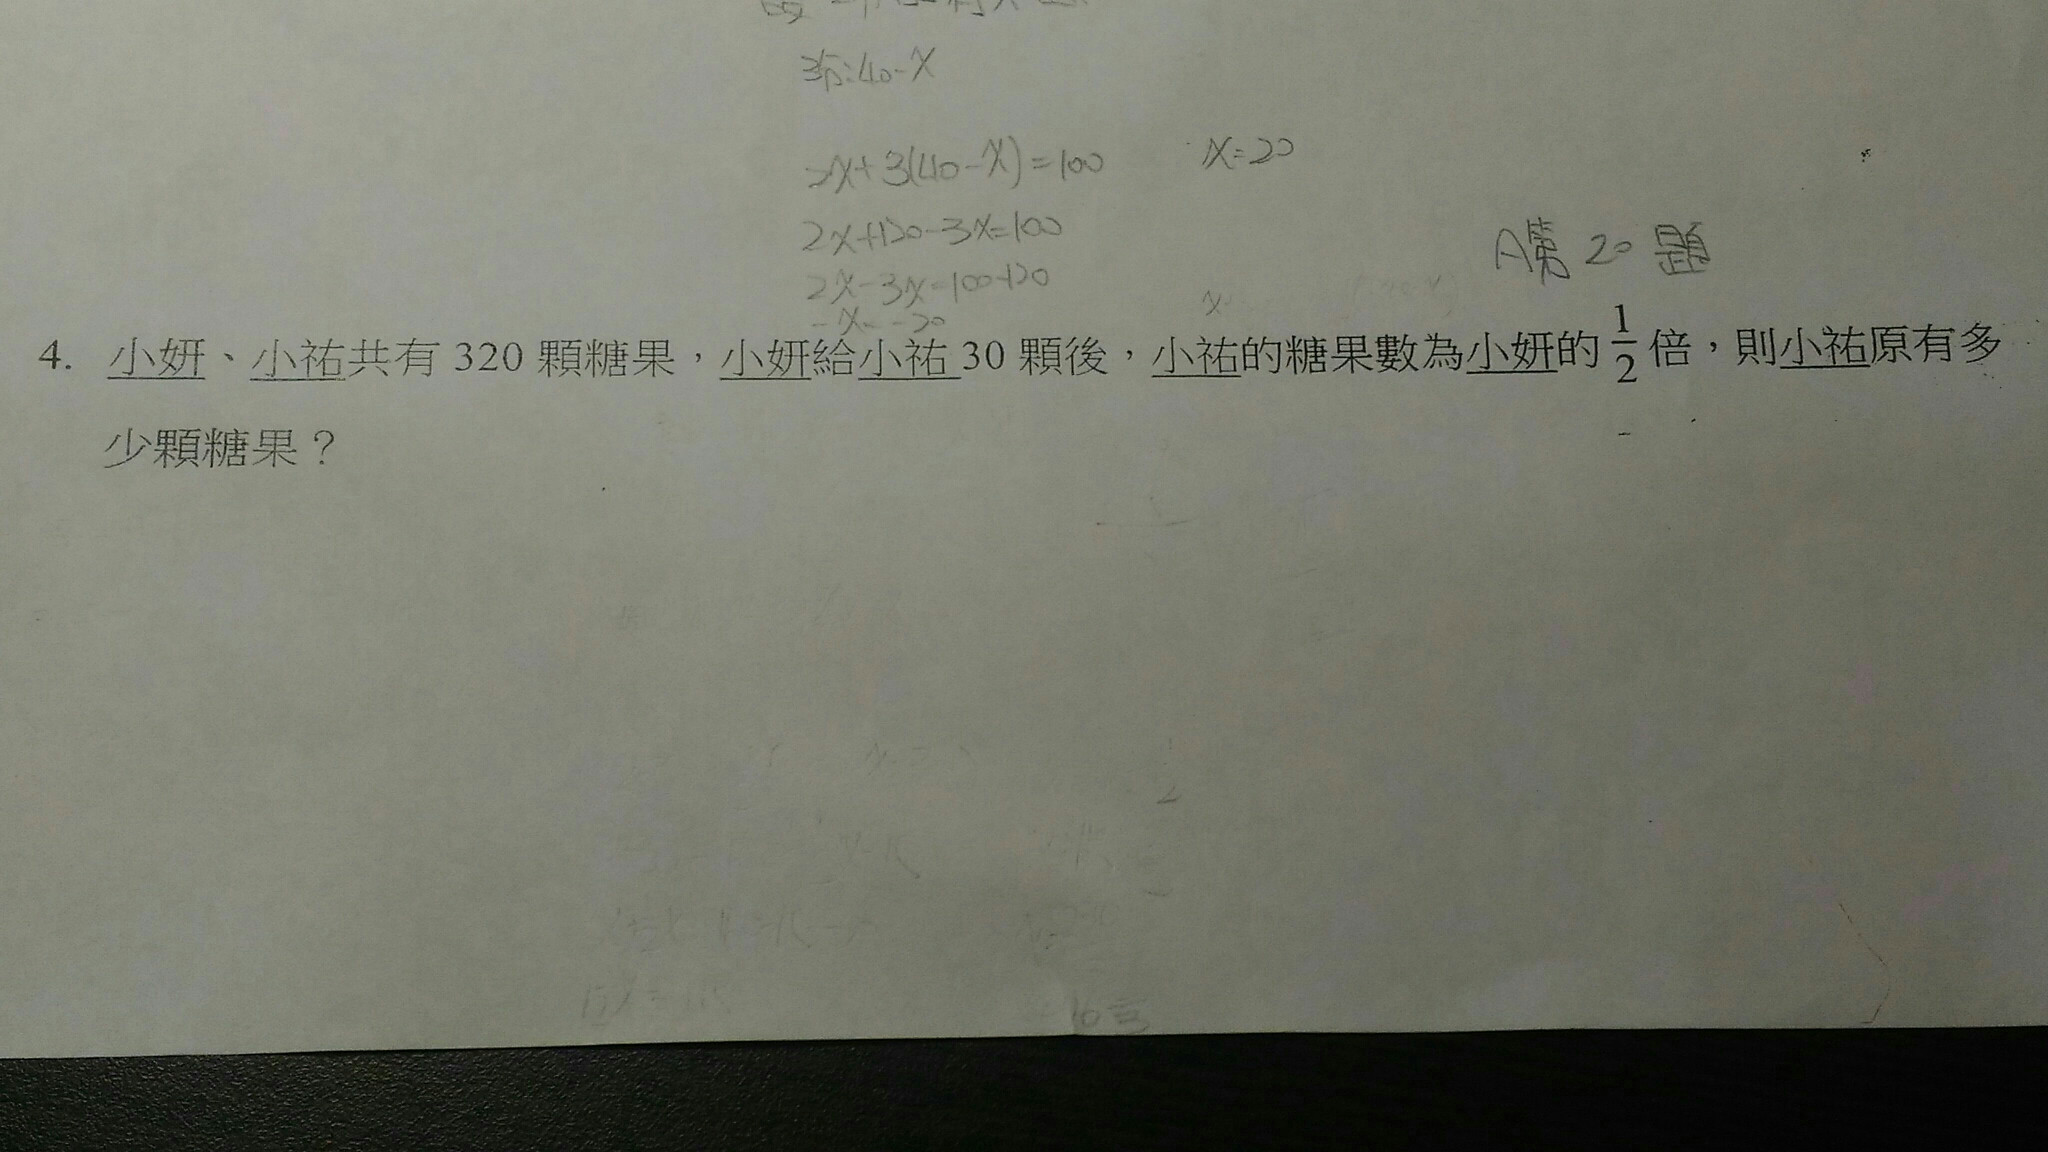 3佰:40-X
2X+3(40-X)=100 X=20
2X+120-3X=100
2X-3X=100-120
-X=-20
A第20題
4. 小妍、小祐共有 320 顆糖果，小妍給小祐 30 顆後，小祐的糖果數為小妍的 1/2 倍，則小祐原有多
少顆糖果？